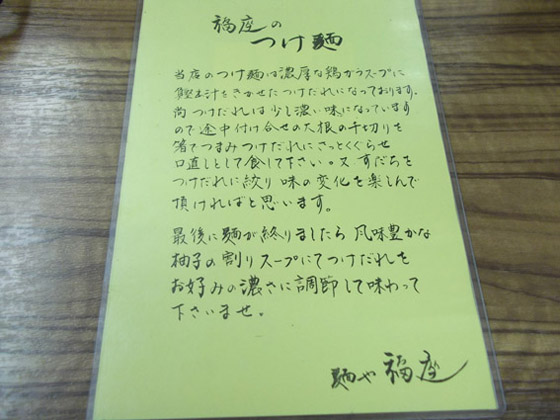 福座の
つけ麺
当店のつけ麺は濃厚な鶏がらスープに
鰹出汁をきかせたつけだれになっております。
尚つけだれは少し濃い味になっています
ので途中付け合せの大根の千切りを
箸でつまみつけだれにさっとくぐらせ
口直しとして食して下さい。又すだちを
つけだれに絞り味の変化を楽しんで
頂ければと思います。
最後に麺が終りましたら風味豊かな
柚子の割りスープにてつけだれを
お好みの濃さに調節して味わって
下さいませ。
麺や福座